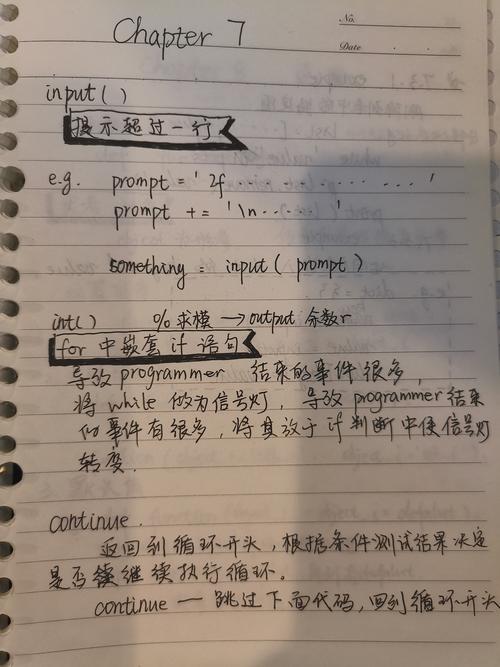 Chapter 7
No.
Date
input()
提示超过一行
e.g. prompt = ' If ········ '
prompt += '\n······ '
something = input(prompt)
int() % 求模 → output 余数r
for 中嵌套 if 语句
导致 programmer 结束的事件很多,
将 while 做为信号灯, 导致 programmer 结束
的事件有很多, 将其放于 if 判断中使信号灯
转变.
continue.
返回到循环开头, 根据条件测试结果决定
是否续继续执行循环。
continue — 跳过下面代码, 回到循环开头